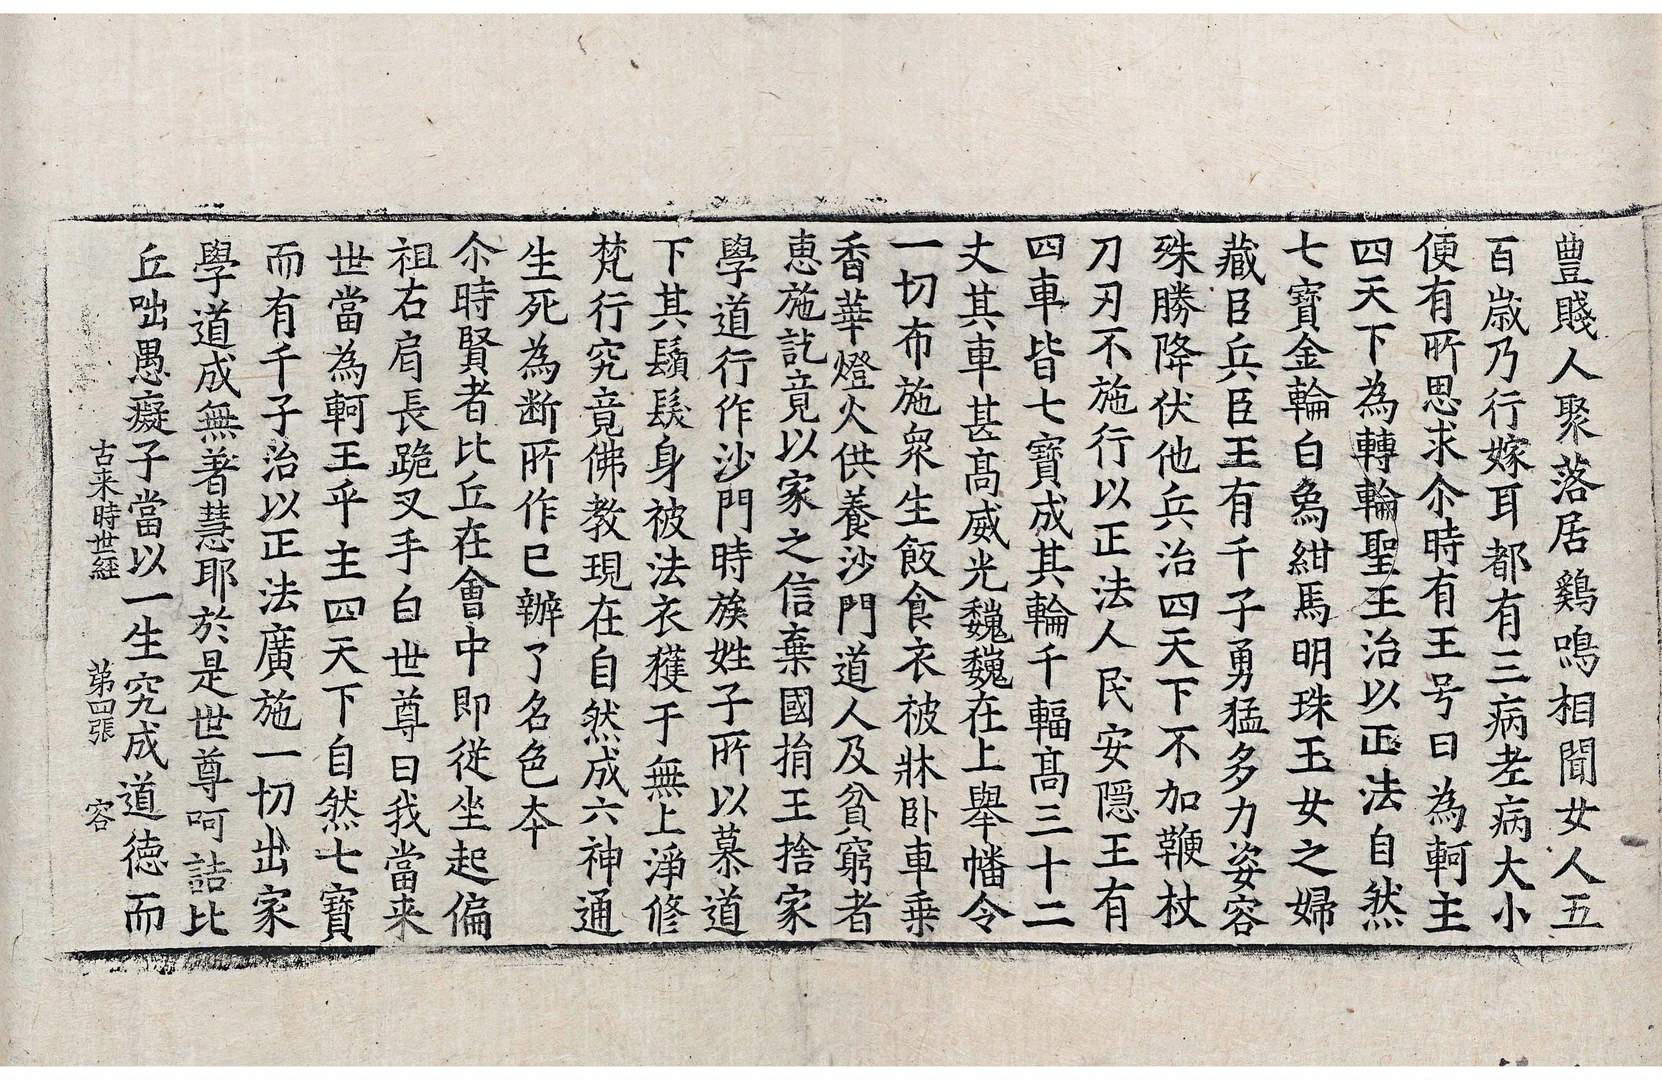 豊賤人聚落居鷄鳴相聞女人五
百歲乃行嫁耳都有三病老病大小
便有所思求尒時有王号曰為軻主
四天下為轉輪聖王治以正法自然
七寶金輪白鳥紺馬明珠玉女之婦
藏臣兵臣王有千子勇猛多力姿容
殊勝降伏他兵治四天下不加鞭杖
刀刃不施行以正法人民安隱王有
四車皆七寶成其輪千輻髙三十二
丈其車甚髙威光巍巍在上舉幡令
一切布施衆生飯食衣被牀卧車乗
香華燈火供養沙門道人及貧窮者
惠施訖竟以家之信棄國捐王捨家
學道行作沙門時族姓子所以慕道
下其鬚髮身被法衣獲于無上淨修
梵行究竟佛教現在自然成六神通
生死為断所作已辦了名色夲
尒時賢者比丘在會中即從坐起偏
袒右肩長跪叉手白世尊曰我當来
世當為軻王乎主四天下自然七寶
而有千子治以正法廣施一切出家
學道成無著慧耶於是世尊呵詰比
丘咄愚癡子當以一生究成道德而
古来時世經 第四張 容